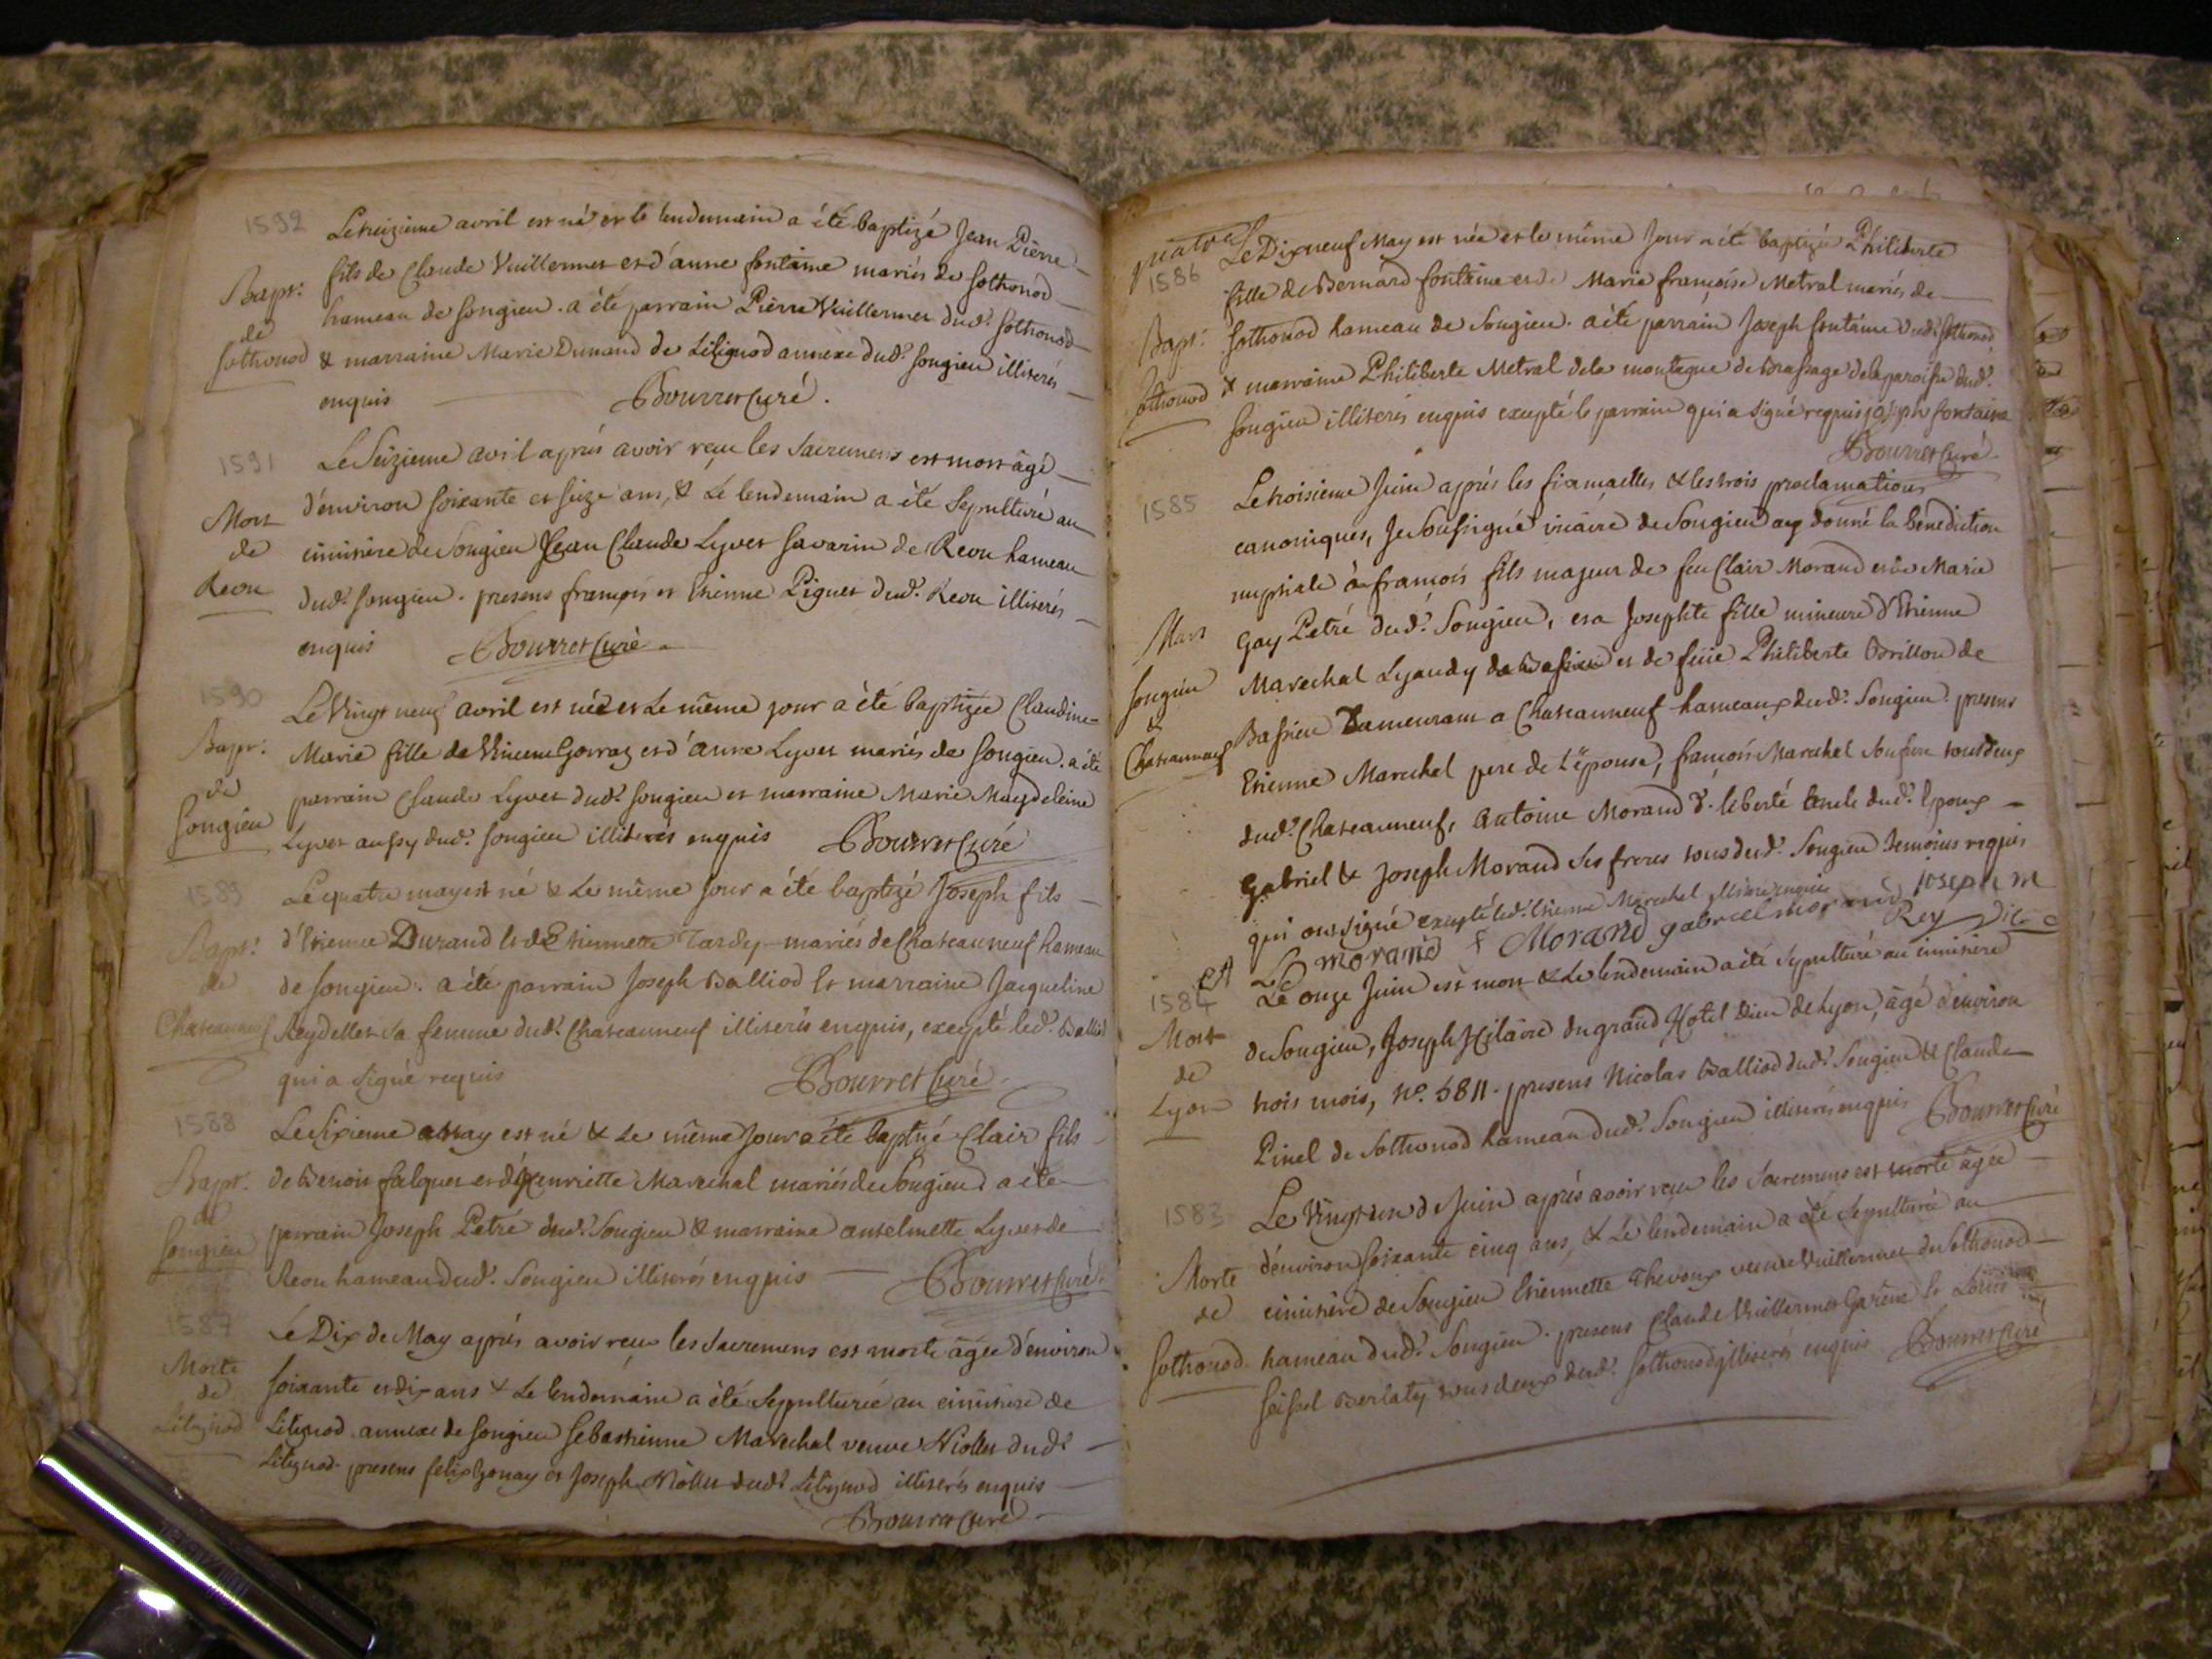 1592
Le treizieme avril est né et le lendemain a été baptizé Jean Pierre
Bapt: fils de Claude Vuillermet et d'anne fontaine mariés de Sothonod
de hameau de Songieu. a été parrain Pierre Vuillermet dud? Sothonod
Sothonod & marraine Marie Dunand de Lilignod annexe dud? Songieu illiterés
enquis Bourret Curé.
1591
Le Seizieme avril aprés avoir reçu les Sacremens est mort âgé
Mort d'environ soixante et seize ans, & Le lendemain a été Sepulturé au
de cimitière de Songieu Jean Claude Lyvet Savarin de Reou hameau
Reou dud? Songieu. presens françois et Etienne Piguet dud? Reou illiterés
enquis Bourret Curé.
1590
Le Vingt neuf avril est née et Le même jour a été baptizée Claudine
Bapt: Marie fille de Vincent Gorraz et d'anne Lyvet mariés de Songieu. a été
de parrain Claude Lyvet dud? Songieu et marraine Marie Magdeleine
Songieu Lyvet aussy dud? Songieu illiterés enquis Bourret Curé
1589
Le quatre may est né & Le même Jour a été baptizé Joseph fils
Bapt: d'Etienne Durand et d'Etiennette Tardy mariés de Chateauneuf hameau
de de Songieu. a été parrain Joseph Balliod et marraine Jacqueline
Chateauneuf Reydellet sa femme dud? Chateauneuf illiterés enquis, excepté led? Balliod
qui a Signé requis Bourret Curé
1588
Le Sixieme May est né & Le même Jour a été baptizé Clair fils
Bapt. de Benoit falquet et d'henriette Marechal mariés de Songieu a été
de parrain Joseph Petré dud? Songieu & marraine anselmette Lyvet de
Songieu Reou hameau dud? Songieu illiterés enquis Bourret Curé
1587
Le Dix de May aprés avoir reçu les Sacremens est morte âgée d'environ
Morte soixante et dix ans & Le lendemain a été Sepulturée au cimitière de
de Lilignod annexe de Songieu Sebastienne Marechal veuve Niollet dud?
Lilignod Lilignod. presens felix Gonay et Joseph Niollet dud? Lilignod illiterés enquis
Bourret Curé
quatre
1586 Le Dixneuf May est née et le même Jour a été baptizée Philiberte
fille de Bernard fontaine et de Marie françoise Metral mariés de
Bapt: Sothonod hameau de Songieu. a été parrain Joseph fontaine dud? Sothonod
Sothonod & marraine Philiberte Metral de la montagne de Brassage de la paroisse dud?
Songieu illiterés enquis excepté le parrain qui a Signé requis joseph fontaine
Bourret Curé
1585
Le troisieme Juin aprés les fiancailles & les trois proclamations
canoniques, Je Soussigné vicaire de Songieu ay donné la benediction
nuptiale à françois fils majeur de feu Clair Morand et de Marie
Mars Gay Petré dud? Songieu, et a Josephte fille mineure d'Etienne
Songieu Marechal Lyaudy de Bassieu et de feüe Philiberte Brillon de
& Bassieu Demeurant a Chateauneuf hameaux dud? Songieu. presens
Chateauneuf Etienne Marechal pere de L'Epouse, françois Marechal Son frere tous deux
dud? Chateauneuf, Antoine Morand liberté oncle dud? Epoux
Gabriel & Joseph Morand Ses freres tous dud? Songieu Temoins requis
qui ont signé excepté led? Etienne Marechal illiteré enquis
morand f Morand gabriel morand joseph m
Rey
1584 Le onze Juin est mort & Le lendemain a été Sepulturé au cimitière
Mort de Songieu, Joseph Hilaire du grand Hotel Dieu de Lyon, âgé d'environ
de trois mois, N°. 5811. presens Nicolas Balliod dud? Songieu & Claude
Lyon Pinel de Sothonod hameau dud? Songieu illiterés enquis Bourret Curé
1583
Le Vingt un de Juin aprés avoir reçu les Sacremens est morte âgée
Morte d'environ soixante cinq ans, & Le lendemain a été Sepulturée au
de cimitière de Songieu Etiennette Thevoux veuve Vuillermet de Sothonod
Sothonod hameau dud? Songieu. presens Claude Vuillermet et Louis
Seissel Berlaty tous deux dud? Sothonod illiterés enquis Bourret Curé